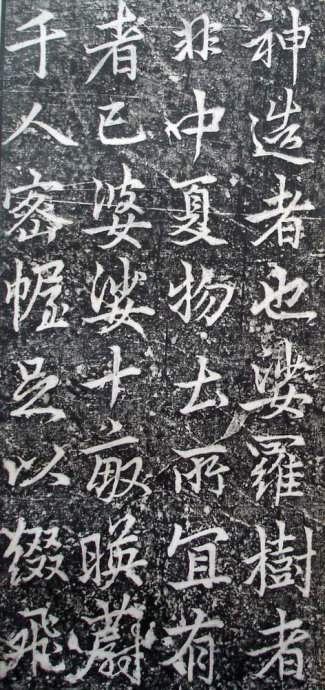 神造者也娑羅樹者
非中夏物土所宜有
者已婆娑十畝映蔚
千人密幄足以綴飛